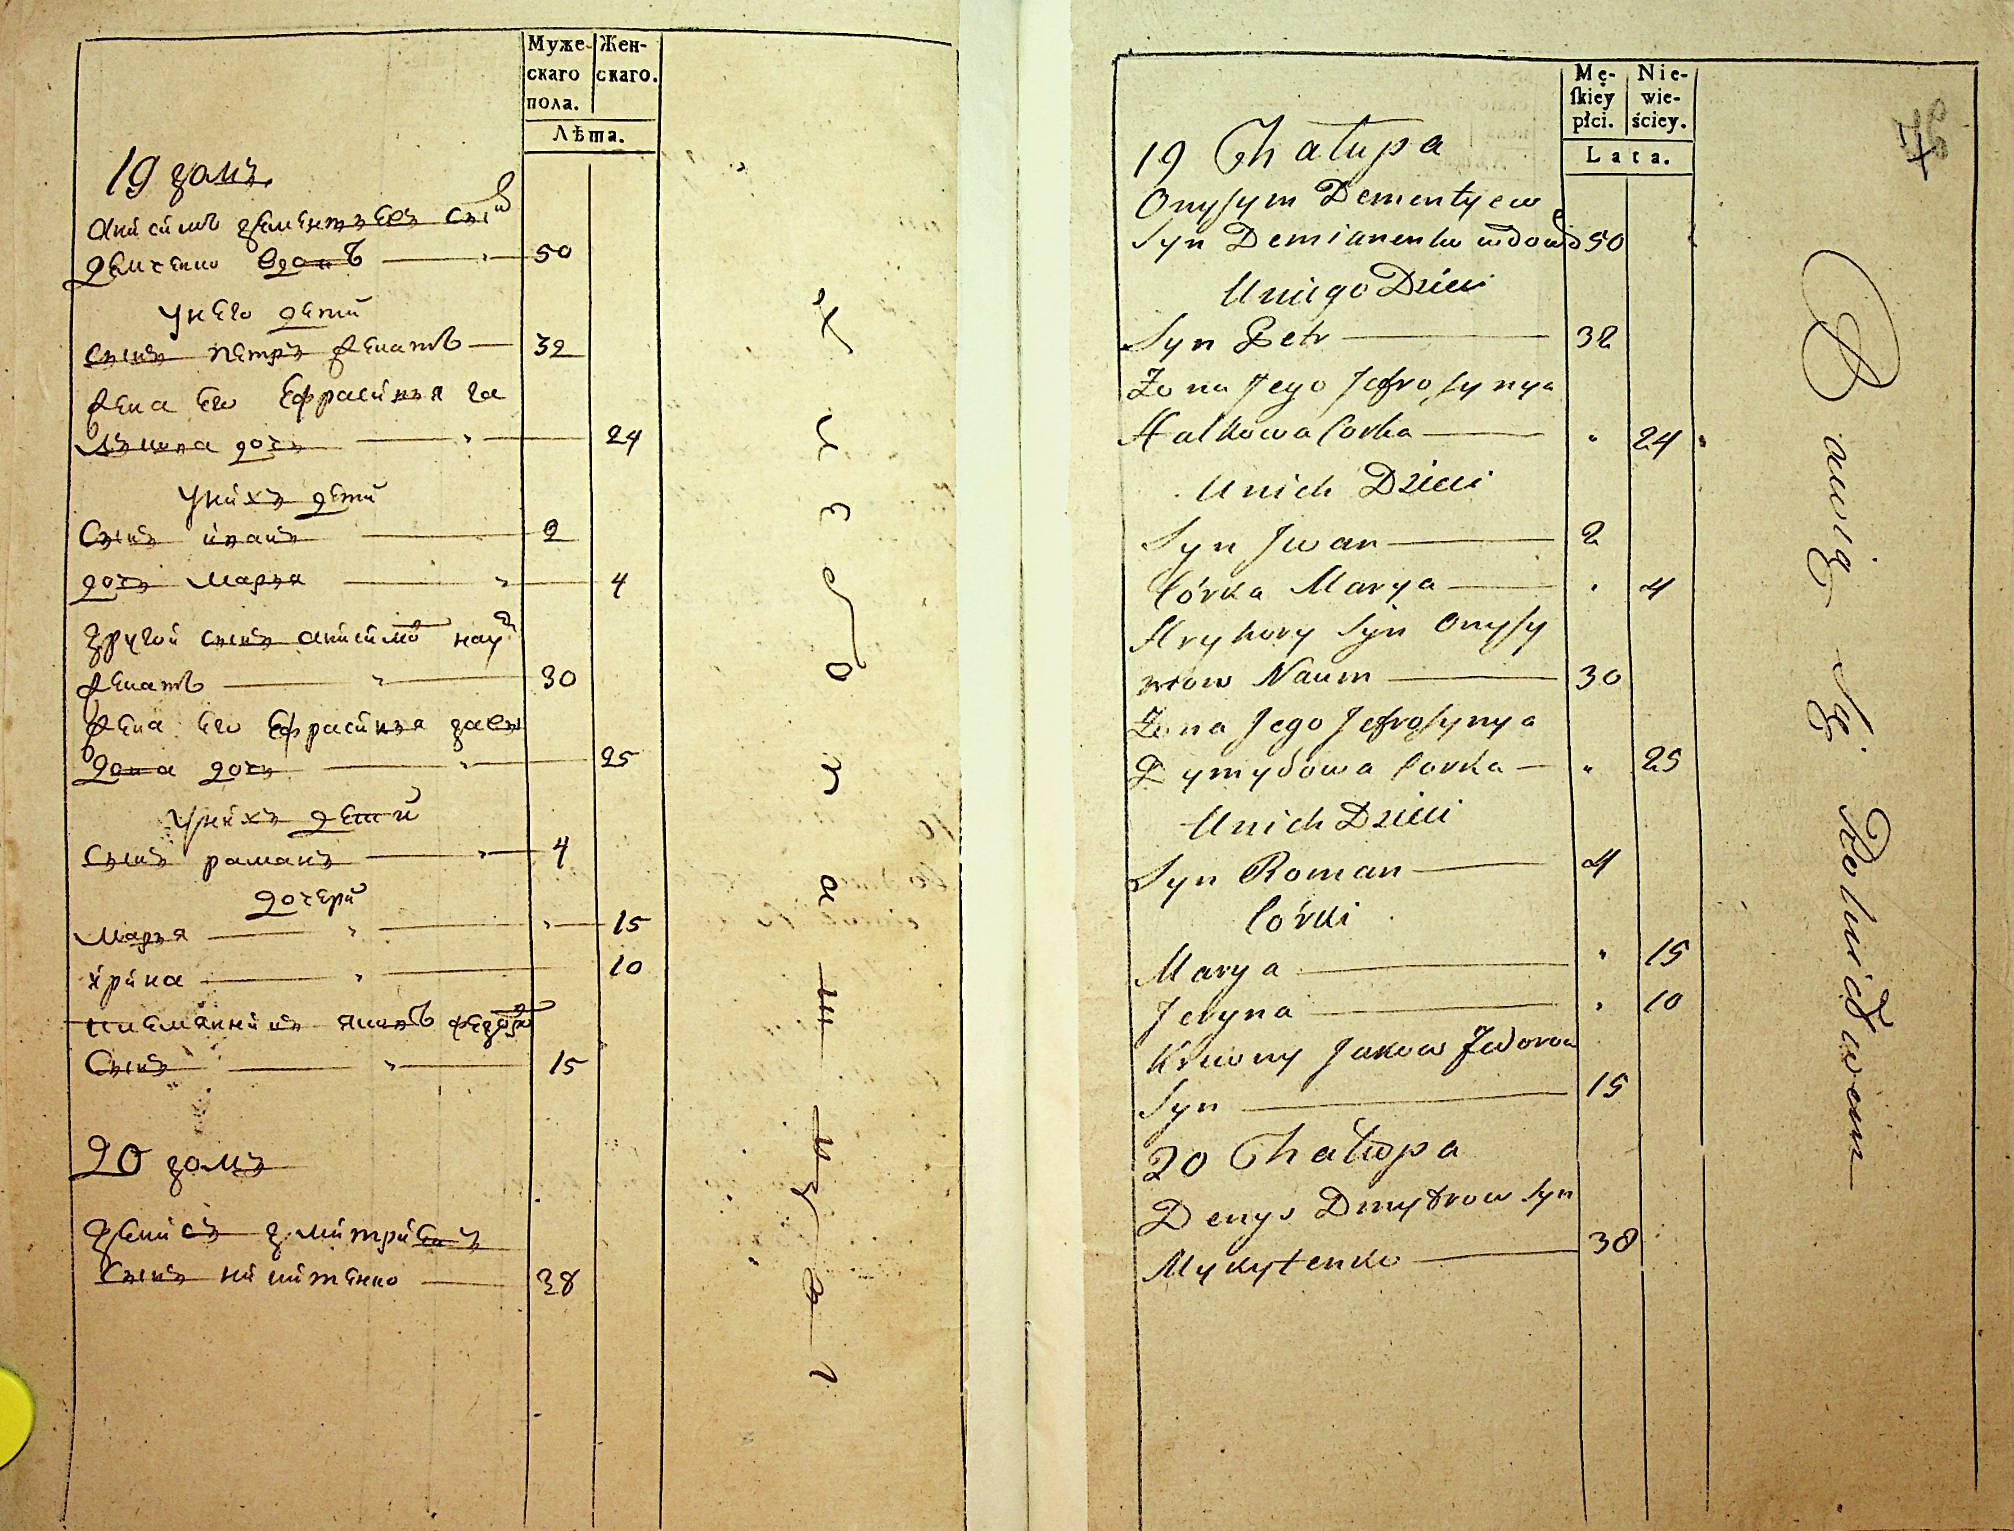 Муже-
скаго
пола.
Жен-
скаго.
Лѣта.
19 домъ
Анисимъ дементьевъ сынъ
демченко вдовъ 50
у него дети
сынъ петръ женатъ 32
жена Его Ефрасинья га
лькова дочь 24
у нихъ дети
Сынъ иванъ 2
дочь Марья 4
другой сынъ анисимовъ наумъ
женатъ 30
жена Его Ефрасинья
дова дочь 25
у нихъ дети
сынъ раманъ 4
дочери
Марья 15
ирина 10
племянникъ яковъ федоровъ
Сынъ 15
20 домъ
денисъ дмитриевъ
Сынъ никитенко 38
хлебопашцы
Mę-
ſkiey
płci.
Nie-
wie-
ściey.
Lata.
19 Chałupa
Onysym Dementyew
Syn Demianenko wdowiec 50
U niego Dzieci
Syn Petr 32
Zona Jego Jefrosynya
Halkowa Corka 24
U nich Dzieci
Syn Jwan 2
Córka Marya 4
Hryhory Syn Onysy
mow Naum 30
Zona Jego Jefrosynya
Dymydowa Corka 25
U nich Dzieci
Syn Roman 4
Córki
Marya 15
Jeryna 10
Krewny Jakow Fedorow
Syn 15
20 Chałupa
Denys Dmytrow Syn
Mykytenko 38
Bawią Się Rolnictwem